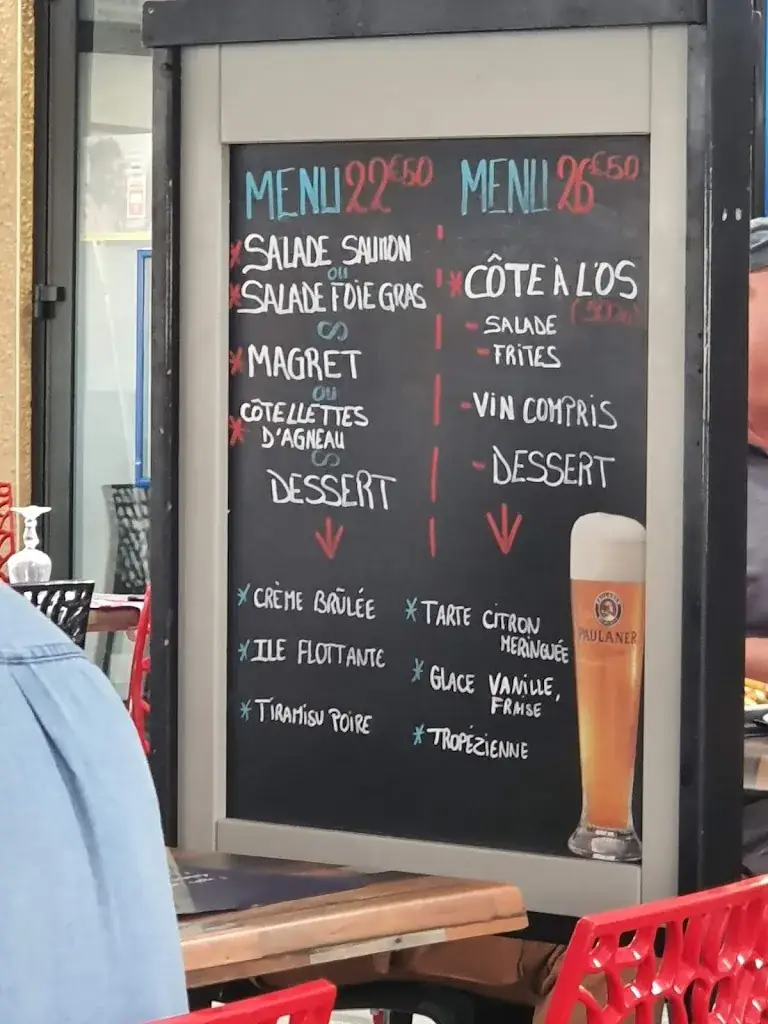 MENU 22€50
SALADE SAUMON
OU
SALADE FOIE GRAS
MAGRET
OU
CÔTELLETTES
D'AGNEAU
DESSERT
MENU 26€50
CÔTE À L'OS
- SALADE
- FRITES
- VIN COMPRIS
- DESSERT
* CRÈME BRÛLÉE
* ILE FLOTTANTE
* TIRAMISU POIRE
* TARTE CITRON
MERINGUÉE
* GLACE VANILLE,
FRAISE
* TROPÉZIENNE
PAULANER